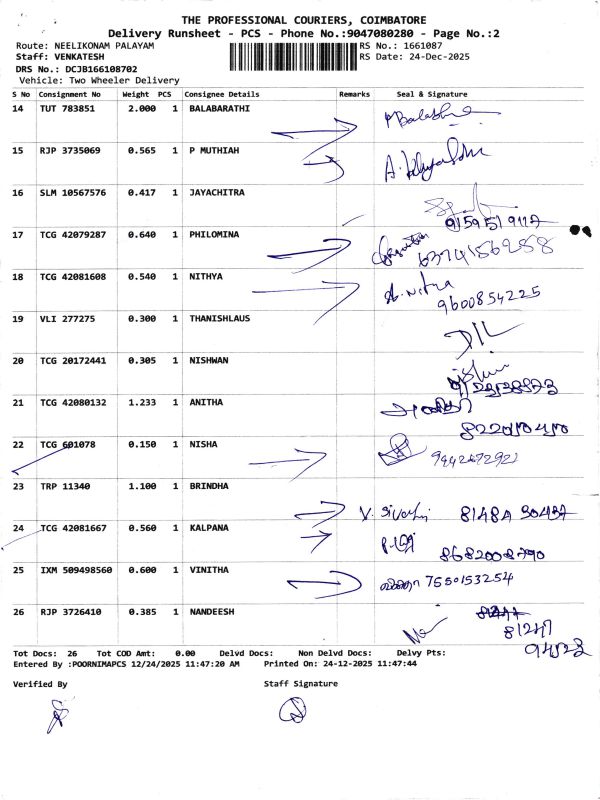 THE PROFESSIONAL COURIERS, COIMBATORE
Delivery Runsheet - PCS - Phone No.:9047080280 - Page No.:2
Route: NEELIKONAM PALAYAM
RS No.: 1661087
Staff: VENKATESH
RS Date: 24-Dec-2025
DRS No.: DCJB166108702
Vehicle: Two Wheeler Delivery
S No Consignment No Weight PCS Consignee Details Remarks Seal & Signature
14 TUT 783851 2.000 1 BALABARATHI
15 RJP 3735069 0.565 1 P MUTHIAH
16 SLM 10567576 0.417 1 JAYACHITRA
17 TCG 42079287 0.640 1 PHILOMINA
18 TCG 42081608 0.540 1 NITHYA
9600854225
19 VLI 277275 0.300 1 THANISHLAUS
20 TCG 20172441 0.305 1 NISHWAN
21 TCG 42080132 1.233 1 ANITHA
22 TCG 601078 0.150 1 NISHA
23 TRP 11340 1.100 1 BRINDHA
24 TCG 42081667 0.560 1 KALPANA
8682008790
25 IXM 509498560 0.600 1 VINITHA 7550153254
26 RJP 3726410 0.385 1 NANDEESH
81247
94523
Tot Docs: 26 Tot COD Amt: 0.00 Delvd Docs: Non Delvd Docs: Delvy Pts:
Entered By :POORNIMAPCS 12/24/2025 11:47:20 AM Printed On: 24-12-2025 11:47:44
Verified By Staff Signature